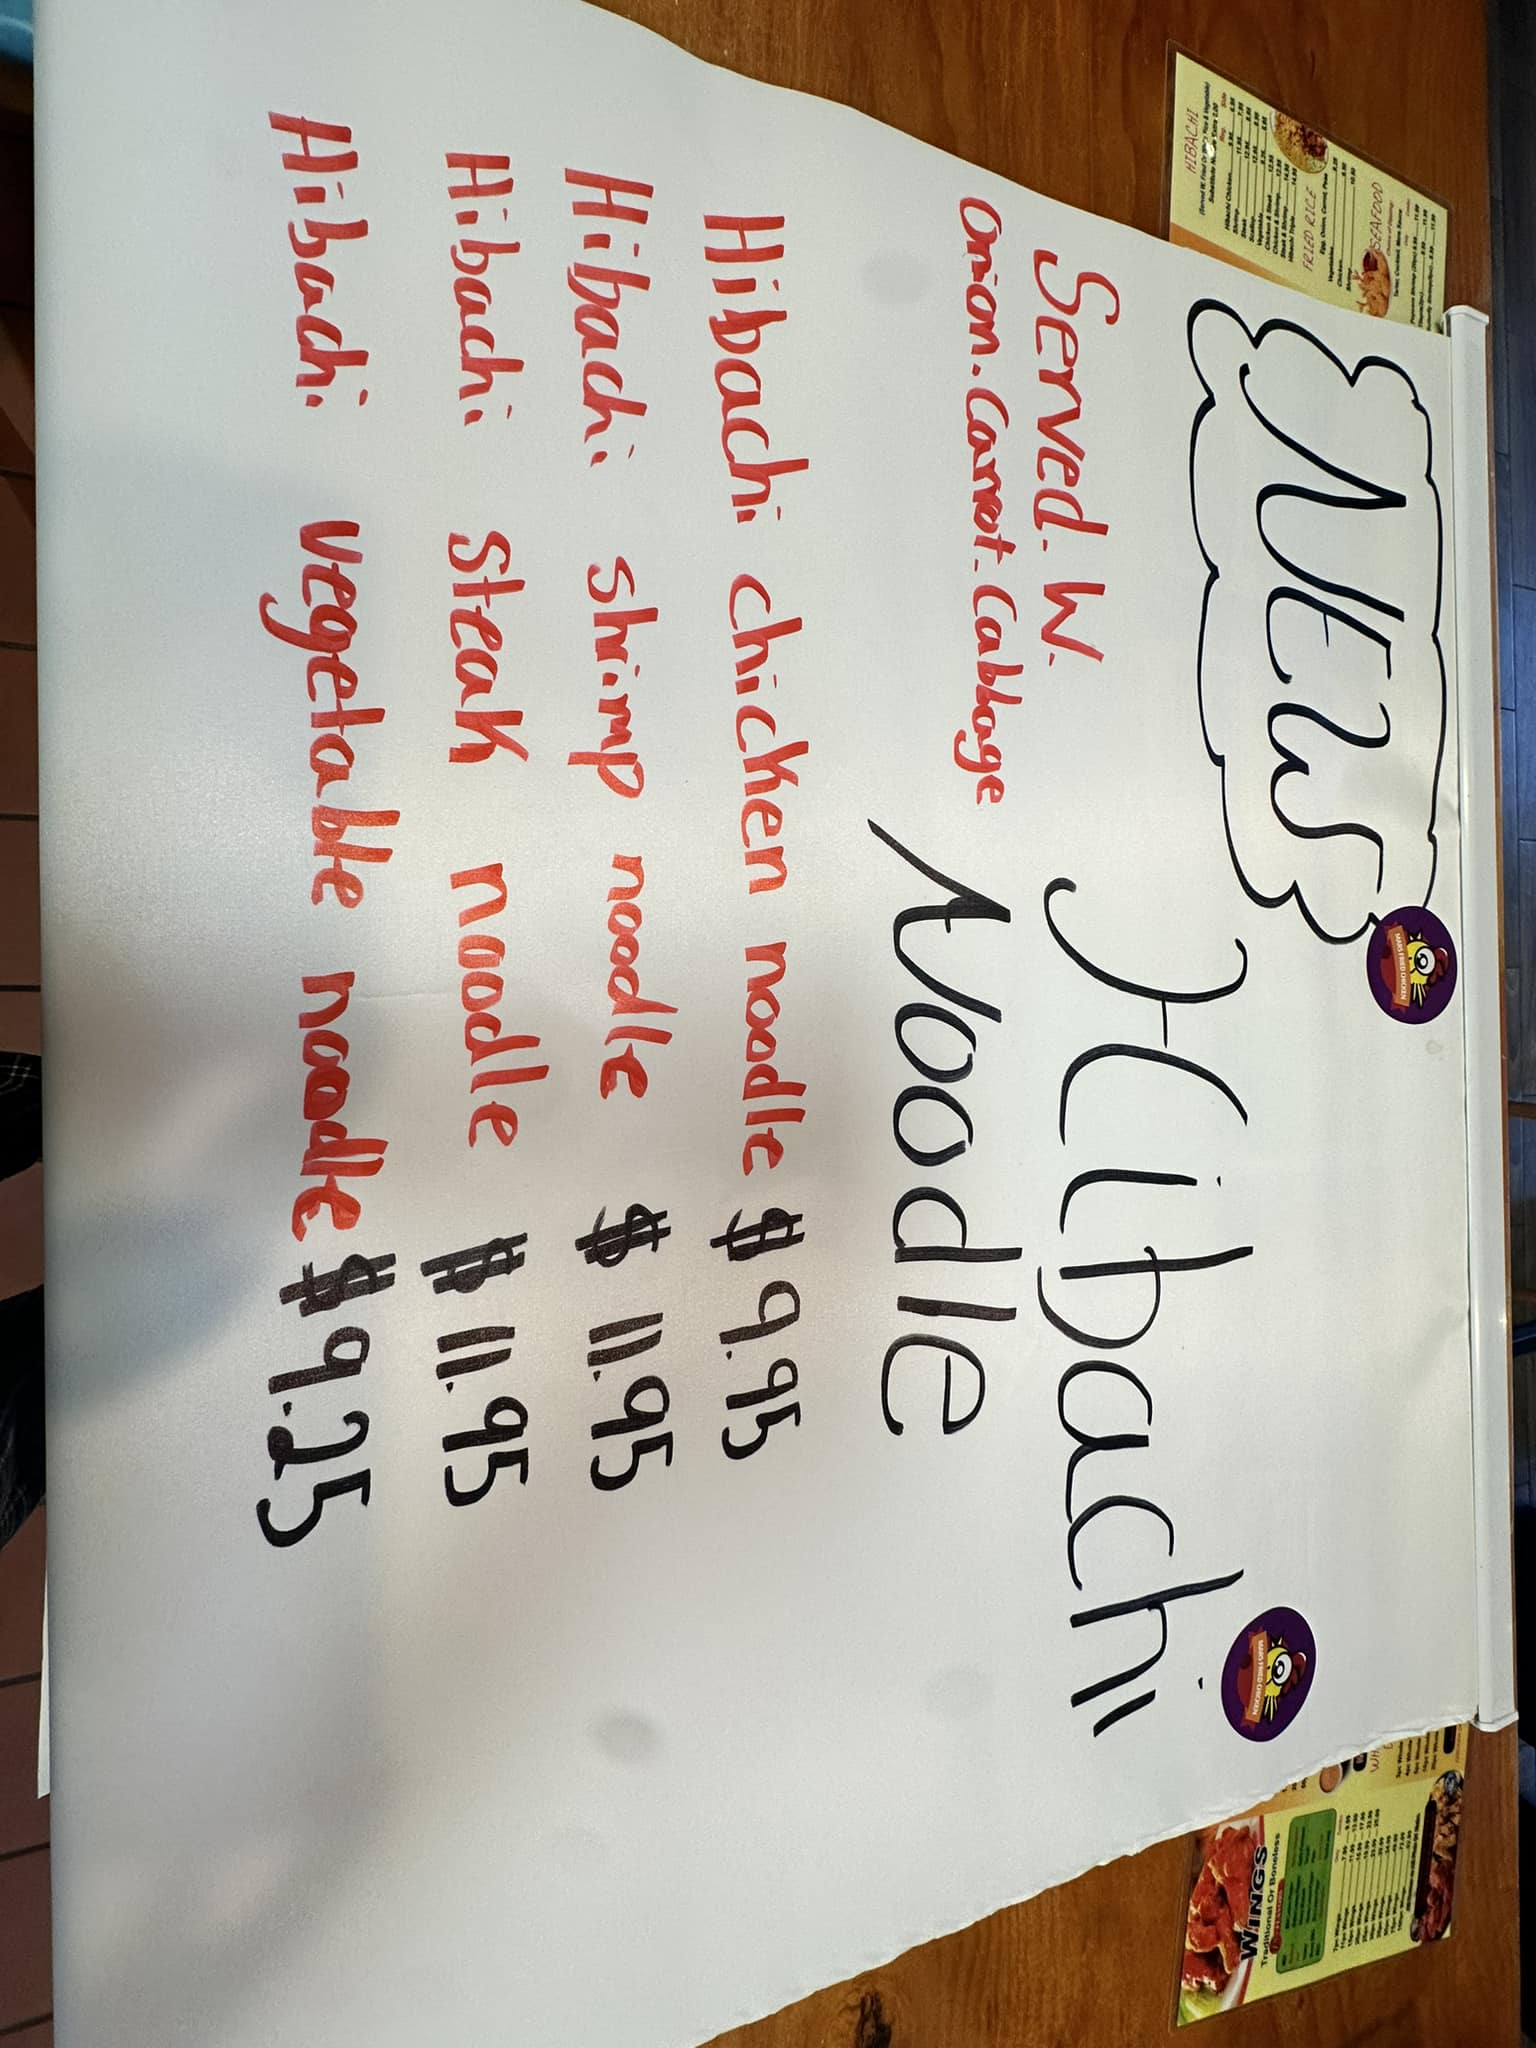 NEW
Hibachi
Noodle
Served. W.
onion. Carrot. Cabbage
Hibachi chicken noodle $9.95
Hibachi shrimp noodle $11.95
Hibachi steak noodle $11.95
Hibachi vegetable noodle $9.25
MARS FRIED CHICKEN
MARS FRIED CHICKEN
HIBACHI
FRIED RICE
SEAFOOD
WINGS
Traditional Or Boneless